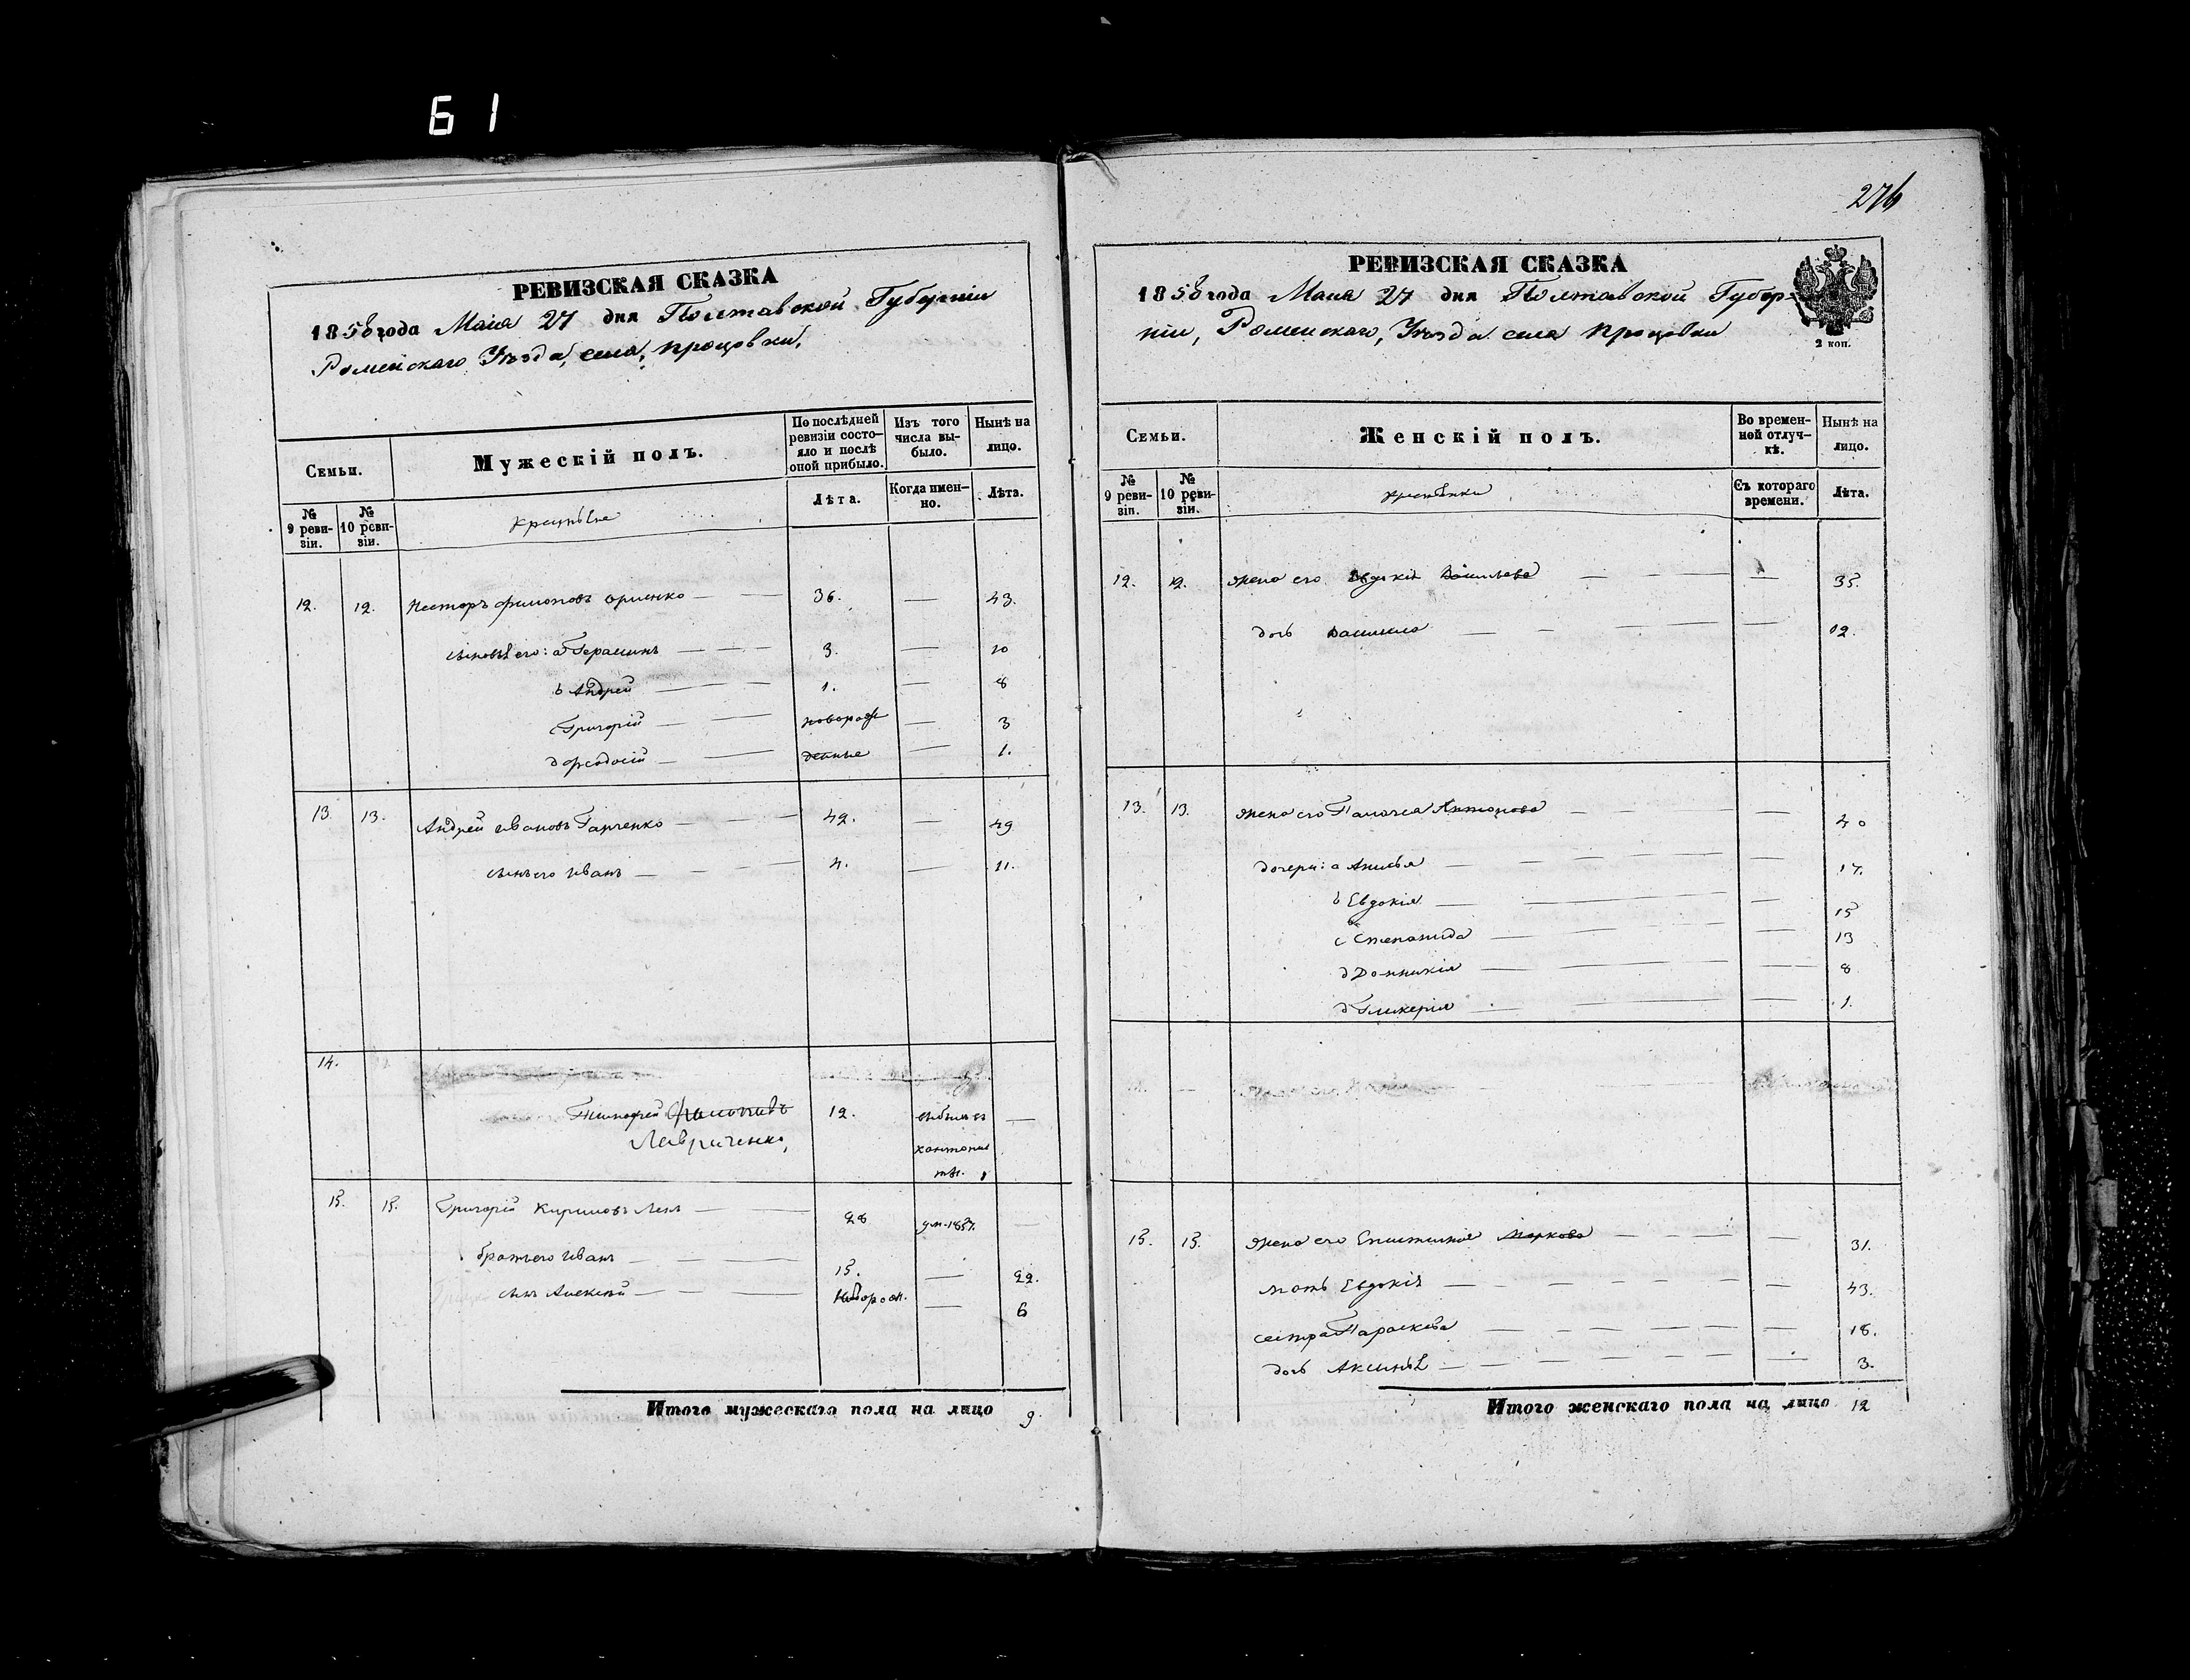 61
РЕВИЗСКАЯ СКАЗКА
1858 года Маія 27 дня Полтавской Губерніи
Роменскаго Уѣзда, села, Процовки,
Семьи.
Мужескій полъ.
По послѣдней ревизіи состояло и послѣ оной прибыло.
Изъ того числа выбыло.
Нынѣ на лицо.
№ 9 ревизіи.
№ 10 ревизіи.
Крестьяне
Лѣта.
Когда именно.
Лѣта.
12. 12. Несторъ Филоновъ 36. — 43.
сыновья его: а Герасимъ 3. — 10
b Андрей 1. — 8
c Григорій новорож — 3
d Феодосій денные — 1.
13. 13. Андрей Ивановъ Гарченко 42. — 49
сынъ его Иванъ 4. — 11.
14.
Тимофей Филоновъ 12. выбылъ въ —
Лавриченко, кантонис
ты.
15. 15. Григорій Кириловъ 28 ум. 1857. —
братъ его Иванъ 15. — 22.
сынъ Алексѣй новорож. — 6
Итого мужескаго пола на лицо 9.
276
РЕВИЗСКАЯ СКАЗКА
1858 года Маія 27 дня Полтавской Губер-
ніи, Роменскаго, Уѣзда села Процовки
2 коп.
Семьи.
Женскій полъ.
Во временной отлучкѣ.
Нынѣ на лицо.
№ 9 ревизіи.
№ 10 ревизіи.
Крестьянки
Съ котораго времени.
Лѣта.
12. 12. жена его Евдокія Васильева — 35.
дочь Василиса — 12.
13. 13. жена его Антонова — 40
дочери: а Анисья — 17.
b Евдокія — 15
c Степанида — 13
d Домникія — 8
d Гликерія — 1.
15. 15. жена его Епистимія Маркова — 31.
мать Евдокія — 43.
сестра Параскева — 18.
дочь Аксинья — 3.
Итого женскаго пола на лицо 12